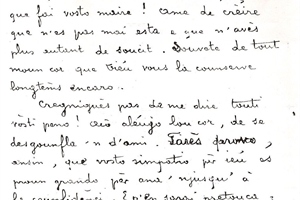 que fai vosto maire ! Ame de crèire
que n'es pas mai esta e que n'avès
plus autant de soucit. Souvete de tout
moun cor que Diéu vous la counserve
longtèms encaro.
Cregnigués pas de me dire touti
vòsti peno ! acò alèujo lou cor, de se
desgounfla 'n d'ami. Fasès provo,
ansin, que vosto simpatìo pèr iéu es
proun grando pèr ana 'njusqu' à
la counfidènci. E n'en sarai pretouca :